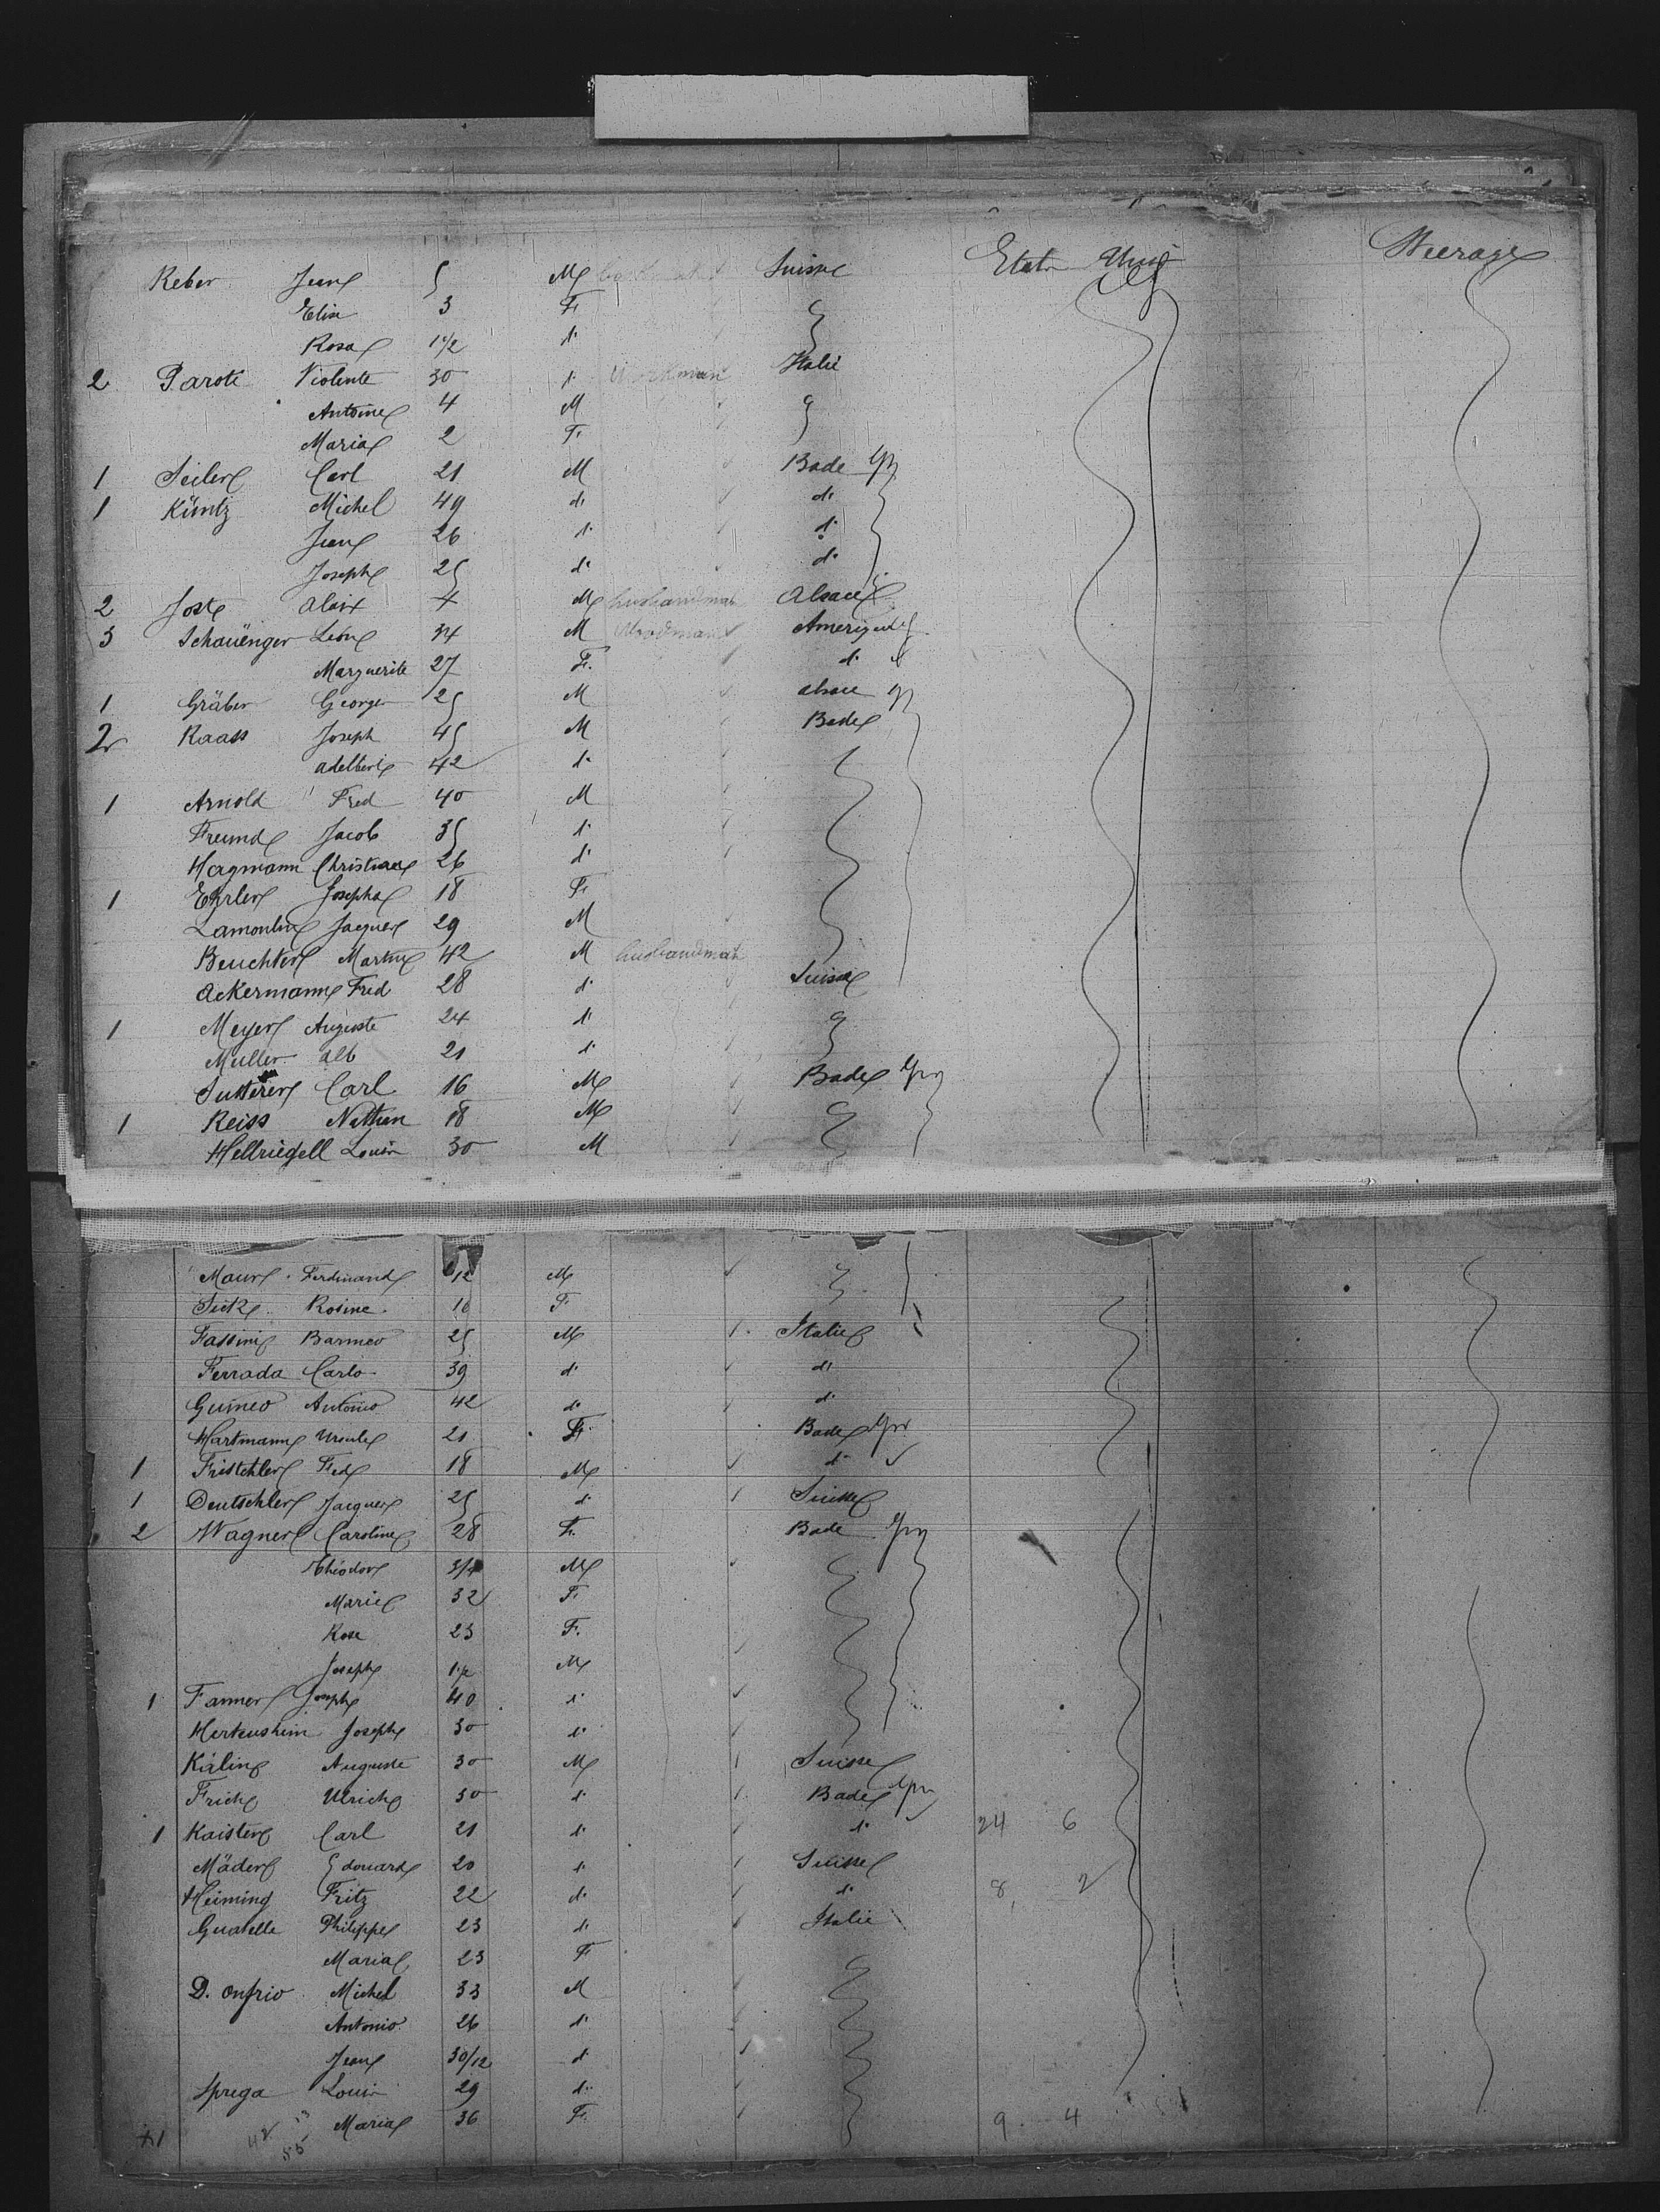 Reber Jean 5 M Suisse Etats Unis Steerage
Elise 3 F
Rosa 1 1/2 d°
2 Paroti Violente 30 d° Workman Italie
Antoine 4 M
Maria 2 F
1 Seiler Carl 21 M Bade Gy
1 Küntz Michel 49 d° d°
Jean 26 d° d°
Joseph 25 d° d°
2 Jost Aloix 4 M husbandman Alsace
3 Schauenger Léon 34 M Workman Amerique
Marguerite 27 F. d°
1 Gräber George 25 M alsace Gy
2 Kaass Joseph 45 M Bade
Adelbert 42 d°
1 Arnold Fred 40 M
Freund Jacob 35 d°
Hagmann Christian 26 d°
1 Ehrler Josepha 18 F
Jaques 29 M
Beuchter Martin 42 M husbandman
Ackermann Fred 28 d° Suisse
1 Meyer Auguste 24 d°
Muller Alb 21 d°
Sutterer Carl 16 M Bade Gy
1 Reiss Nathan 18 M
Hellriegell Louis 30 M
Maur Ferdinand 12 M
Rosine F
Fassini Barmeo 25 M Italie
Ferrada Carlo 39 d° d°
Guineo Antonio 42 d° d°
Hartmann Ursule 21 F. Bade Gy
1 Fristchler Fed 18 M d°
1 Deutschler Jacques 25 d° Suisse
2 Wagner Caroline 28 F. Bade Gy
Théodor 3/4 M
Marie 32 F
Rose 23 F.
Joseph 1 1/2 M
1 Fanner Joseph 40 d°
Hertenshein Joseph 30 d°
Kälin Auguste 30 M Suisse
Frich Ulrich 30 d° Bade Gy
1 Kaister Carl 21 d° d° 24 6
Mäder Edouard 20 d° Suisse
Heiming Fritz 22 d° d° 8 2
Guatelle Philippe 23 d° Italie
Maria 23 F
D. Onfrio Michel 33 M
Antonio 26 d°
Jean 30/12 d°
Sprega Louis 29 d°
Maria 36 F. 9 4
42 13
55